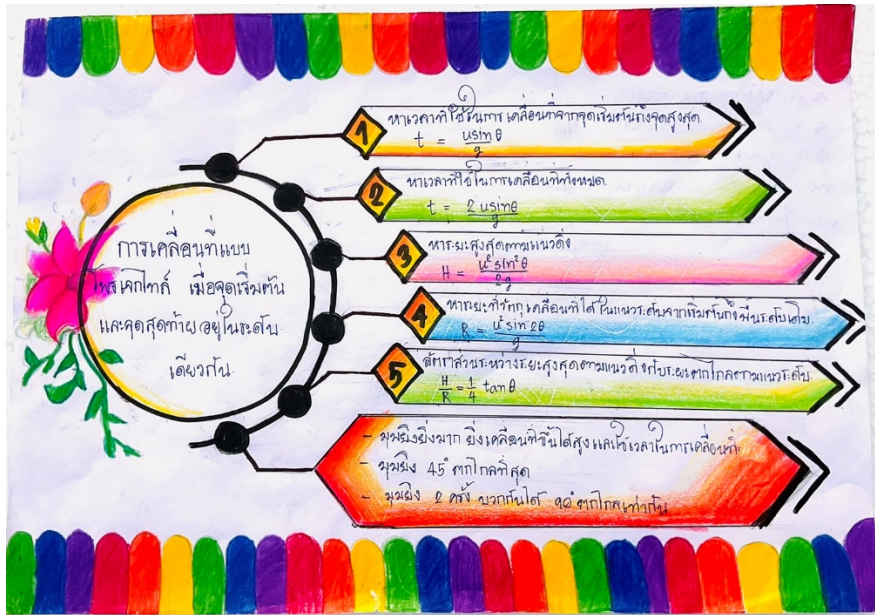 การเคลื่อนที่แบบ
โพรเจกไทล์ เมื่อจุดเริ่มต้น
และจุดสุดท้ายอยู่ในระดับ
เดียวกัน
1
หาเวลาที่ใช้ในการเคลื่อนที่จากจุดเริ่มต้นถึงจุดสูงสุด
t = usinθ/g
2
หาเวลาที่ใช้ในการเคลื่อนที่ทั้งหมด
t = 2usinθ/g
3
หาระยะสูงสุดตามแนวดิ่ง
H = u²sin²θ/2g
4
หาระยะที่วัตถุเคลื่อนที่ได้ในแนวระดับจากเริ่มต้นถึงพื้นระดับเดิม
R = u²sin2θ/g
5
อัตราส่วนระหว่างระยะสูงสุดตามแนวดิ่งกับระยะตกไกลตามแนวระดับ
H/R = 1/4 tanθ
- มุมยิงยิ่งมาก ยิ่งเคลื่อนที่ขึ้นได้สูง และใช้เวลาในการเคลื่อนที่
- มุมยิง 45° ตกไกลที่สุด
- มุมยิง 2 ครั้ง บวกกันได้ 90° ตกไกลเท่ากัน